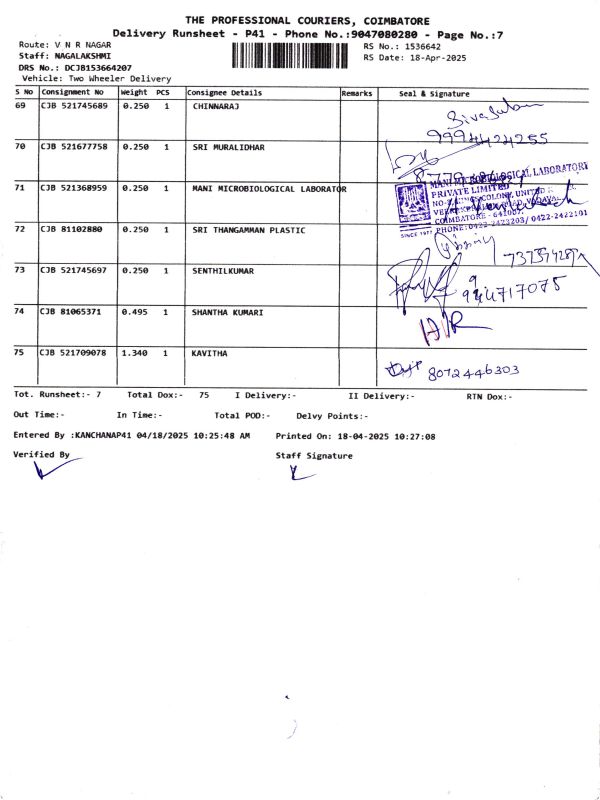 THE PROFESSIONAL COURIERS, COIMBATORE
Delivery Runsheet - P41 - Phone No.:9047080280 - Page No.:7
Route: V N R NAGAR
RS No.: 1536642
Staff: NAGALAKSHMI
RS Date: 18-Apr-2025
DRS No.: DCJB153664207
Vehicle: Two Wheeler Delivery
S No Consignment No Weight PCS Consignee Details Remarks Seal & Signature
69 CJB 521745689 0.250 1 CHINNARAJ
9994424255
70 CJB 521677758 0.250 1 SRI MURALIDHAR
71 CJB 521368959 0.250 1 MANI MICROBIOLOGICAL LABORATOR
MANI MICROBIOLOGICAL LABORATORY
PRIVATE LIMITED
COIMBATORE - 641007.
PHONE: 0422-2423203/ 0422-2422101
SINCE 1977
72 CJB 81102880 0.250 1 SRI THANGAMMAN PLASTIC
73 CJB 521745697 0.250 1 SENTHILKUMAR
74 CJB 81065371 0.495 1 SHANTHA KUMARI
75 CJB 521709078 1.340 1 KAVITHA
8072446303
Tot. Runsheet:- 7 Total Dox:- 75 I Delivery:- II Delivery:- RTN Dox:-
Out Time:- In Time:- Total POD:- Delvy Points:-
Entered By :KANCHANAP41 04/18/2025 10:25:48 AM Printed On: 18-04-2025 10:27:08
Verified By Staff Signature